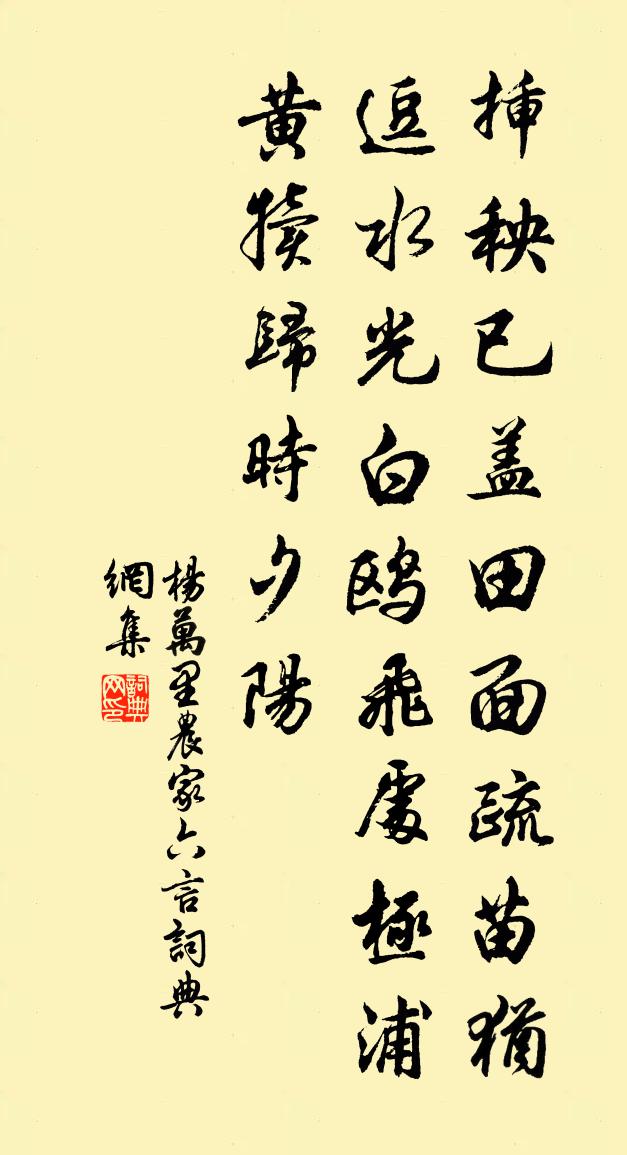 挿秧已蓋田面疏苗猶
逗水光白鷗飛處極浦
黄犢歸時夕陽
楊萬里農家六言詞典
網集
詞典
网印